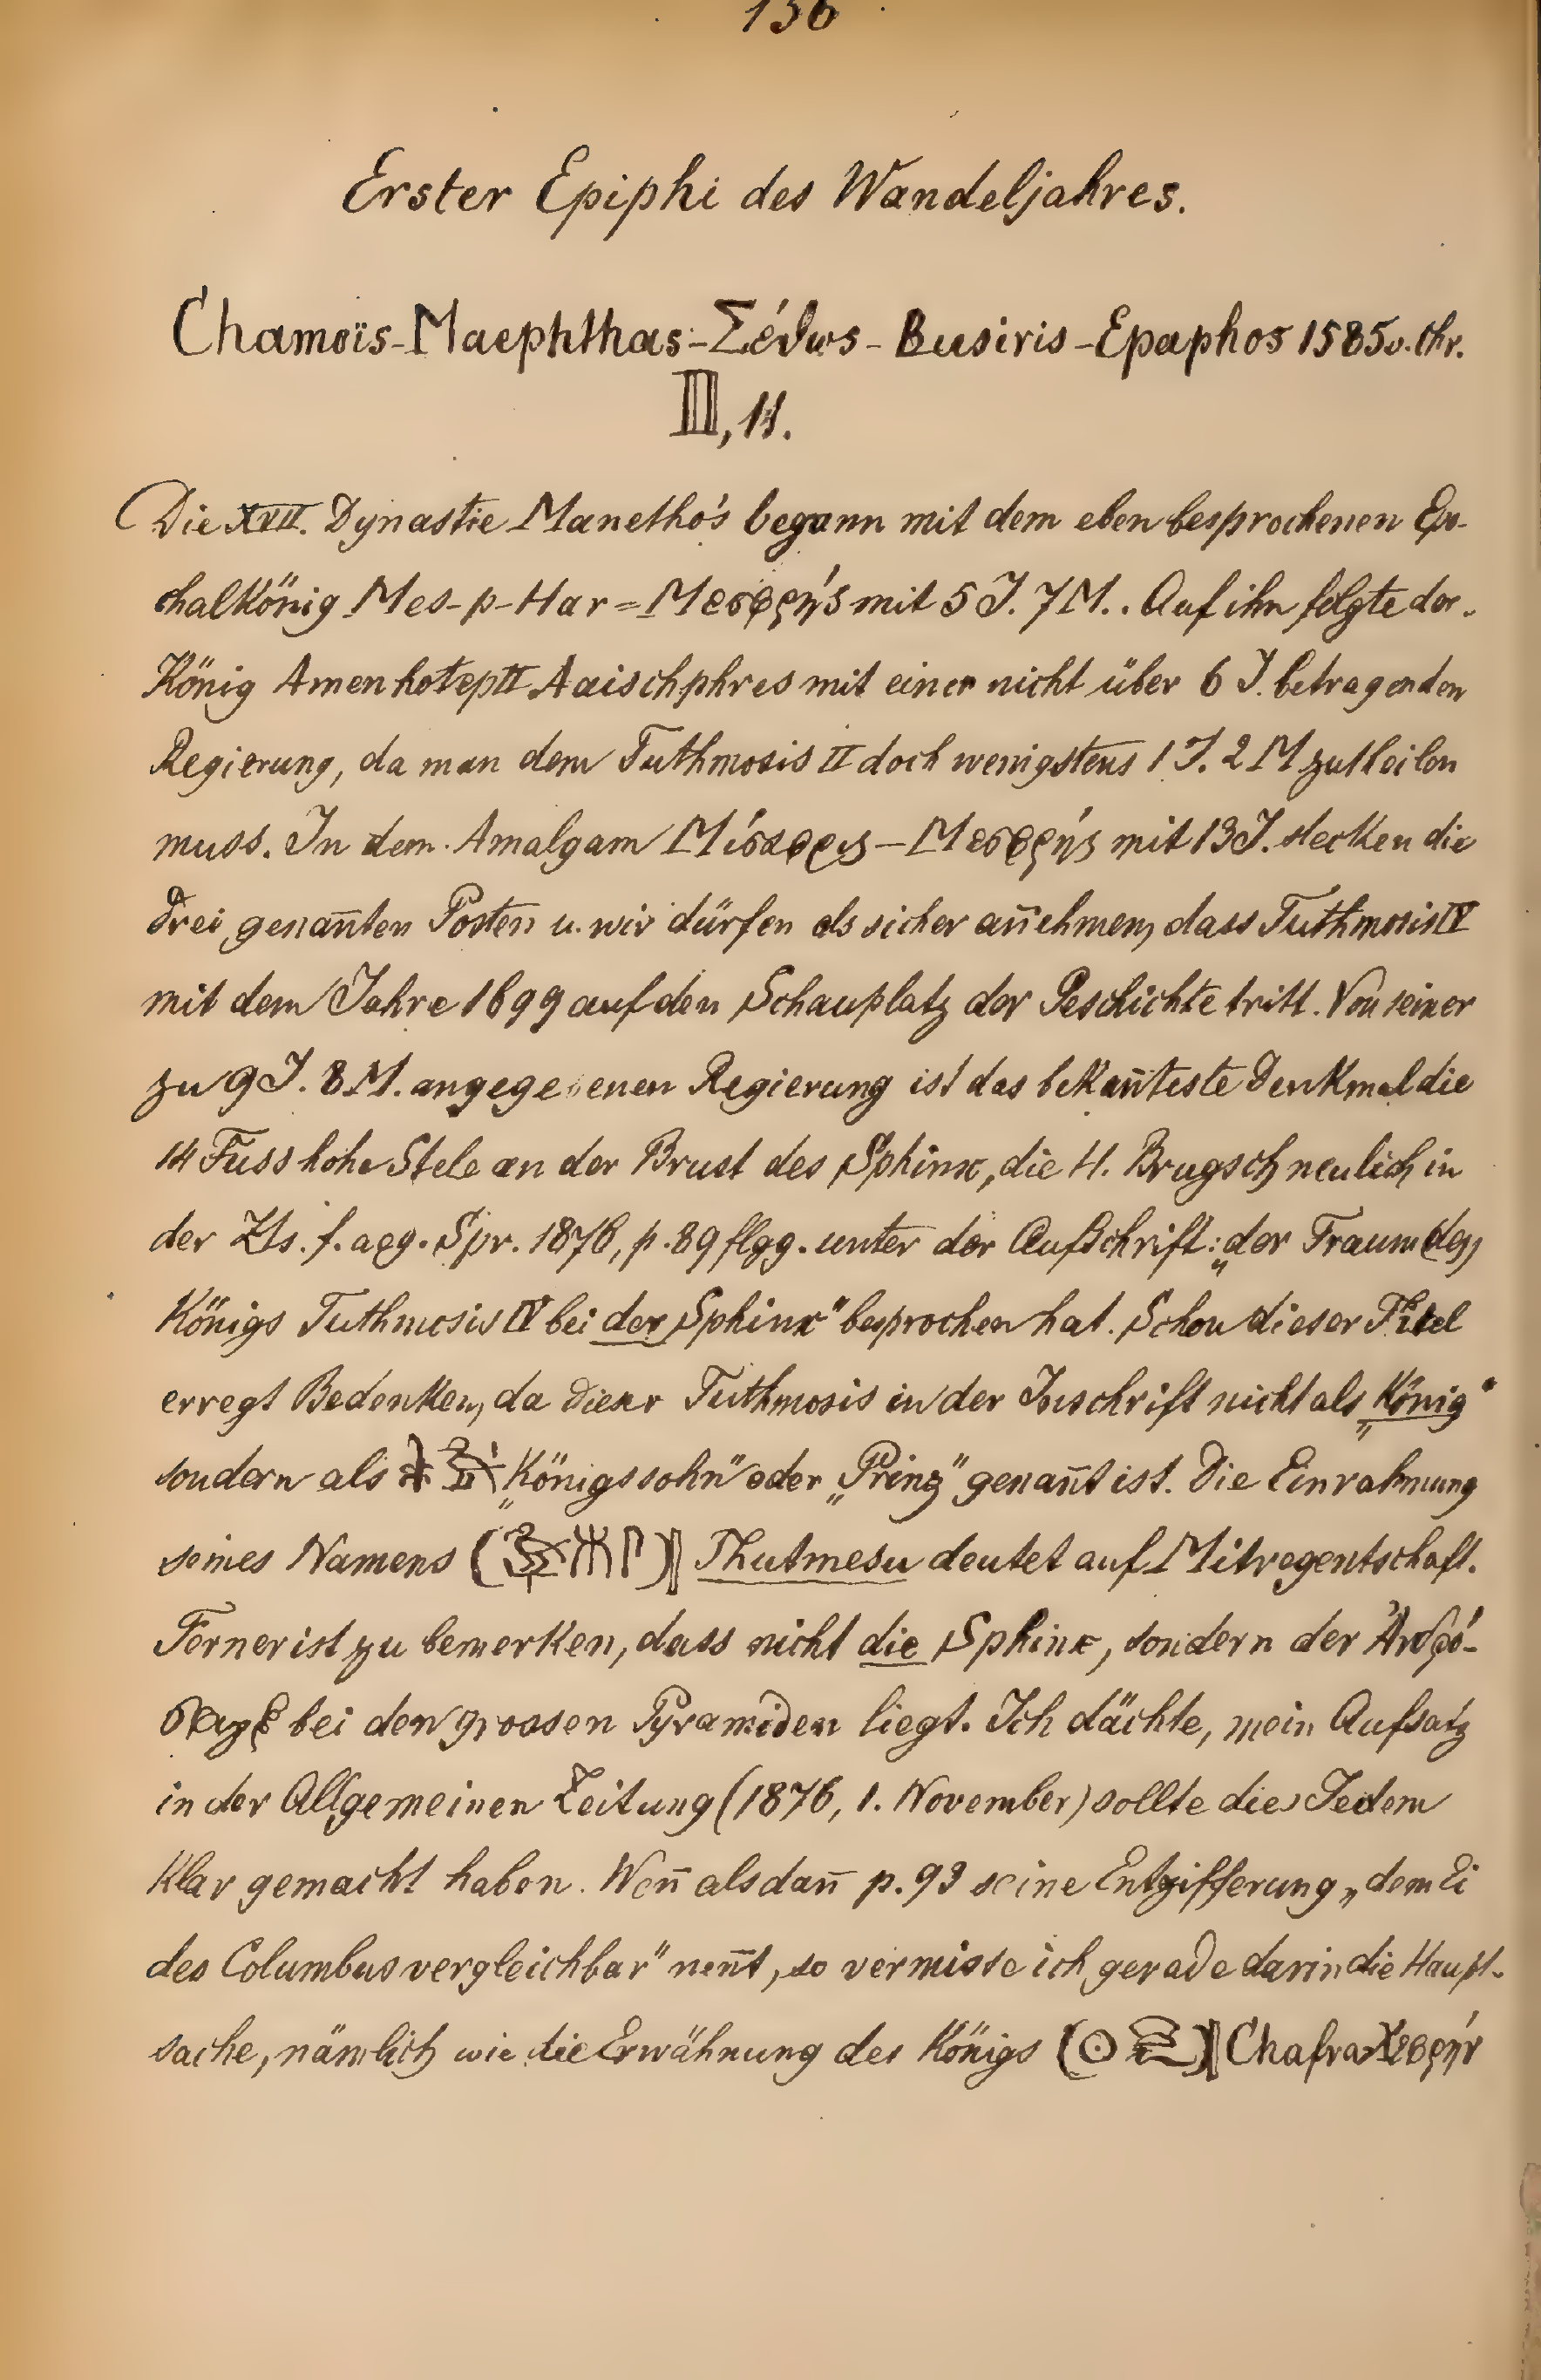 136
Erster Epiphi des Wandeljahres.
Chamoïs-Maephthas-Σέθως-Busiris-Epaphos 1585 v. Chr.
III, 11.
Die XVII. Dynastie Manetho's begann mit dem eben besprochenen Epo-
chalkönig Mes-p-Har=Μεσφρής mit 5 J. 7 M.. Auf ihn folgte der
König Amenhotep II Aaischphres mit einer nicht über 6 J. betragenden
Regierung, da man dem Tuthmosis II doch wenigstens 1 J. 2 M zutheilen
muss. In dem Amalgam Μίσαφρις–Μεσφρής mit 13 J. stecken die
drei genan̄ten Posten u. wir dürfen als sicher an̄ehmen, dass Tuthmosis IV
mit dem Jahre 1699 auf den Schauplatz der Geschichte tritt. Von seiner
zu 9 J. 8 M. angegebenen Regierung ist das bekan̄teste Denkmal die
14 Fuss hohe Stele an der Brust des Sphinx, die H. Brugsch neulich in
der Zts. f. aeg. Spr. 1876, p. 89 flgg. unter der Aufschrift: „der Traum des
Königs Tuthmosis IV bei der Sphinx" besprochen hat. Schon dieser Titel
erregt Bedenken, da dieser Tuthmosis in der Inschrift nicht als „König"
sondern als „Königssohn" oder „Prinz" genan̄t ist. Die Einrahmung
seines Namens Thutmesu deutet auf Mitregentschaft.
Ferner ist zu bemerken, dass nicht die Sphinx, sondern der Ἀνδρό-
σφιγξ bei den grossen Pyramiden liegt. Ich dächte, mein Aufsatz
in der Allgemeinen Zeitung (1876, 1. November) sollte dies Jedem
klar gemacht haben. Wen̄ alsdan̄ p. 93 seine Entzifferung „dem Ei
des Columbus vergleichbar" nen̄t, so vermisse ich gerade darin die Haupt-
sache, nämlich wie die Erwähnung des Königs Chafra Χεφρήν